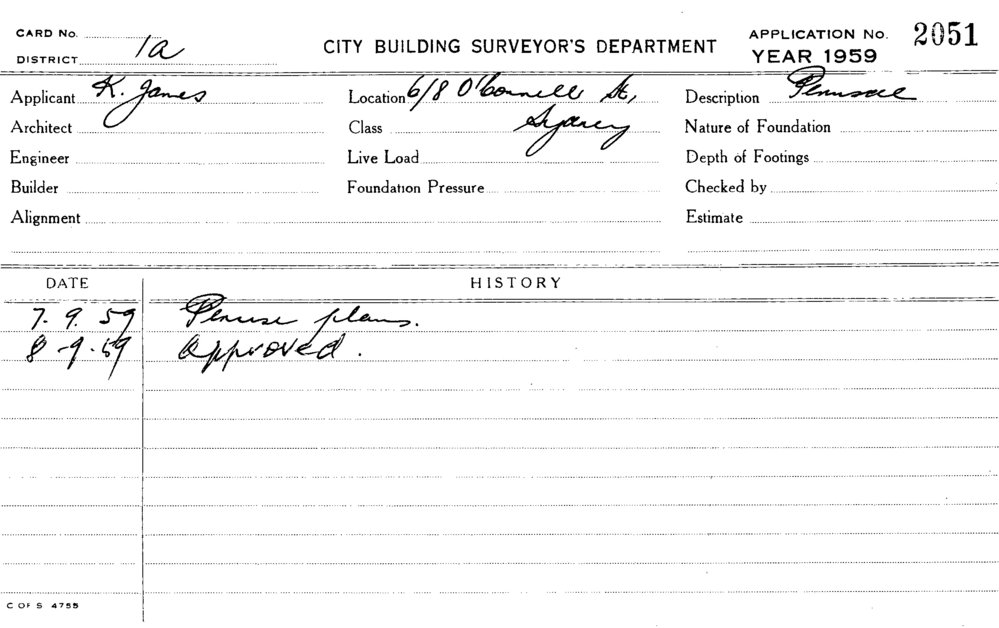 CARD No.
DISTRICT 1a
CITY BUILDING SURVEYOR'S DEPARTMENT
APPLICATION No. 2051
YEAR 1959
Applicant K. James Location 6/8 O'Connell St, Description Perusal
Architect Class Sydney Nature of Foundation
Engineer Live Load Depth of Footings
Builder Foundation Pressure Checked by
Alignment Estimate
DATE HISTORY
7. 9. 59 Peruse plans.
8-9-59 Approved.
C OF S 4755